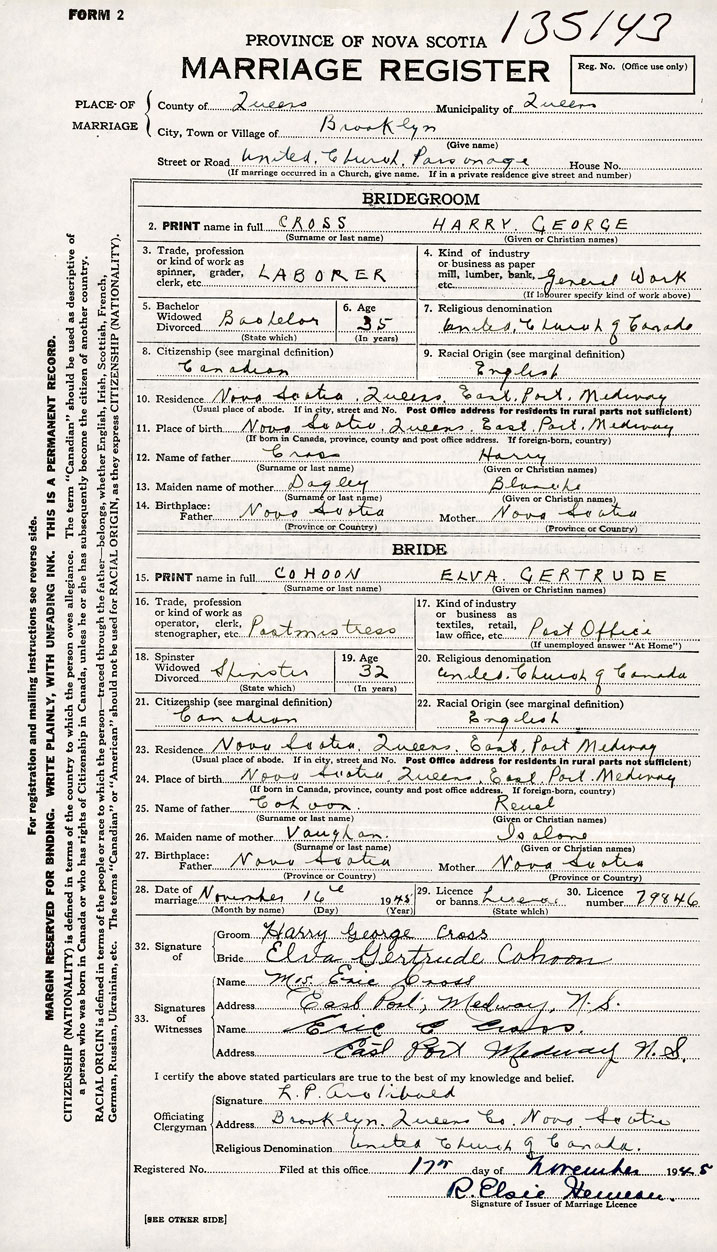 FORM 2
135143
PROVINCE OF NOVA SCOTIA
MARRIAGE REGISTER
Reg. No. (Office use only)
PLACE OF MARRIAGE
County of Queens Municipality of Queens
City, Town or Village of Brooklyn
(Give name)
Street or Road United Church Parsonage House No.
(If marriage occurred in a Church, give name. If in a private residence give street and number)
BRIDEGROOM
2. PRINT name in full CROSS HARRY GEORGE
(Surname or last name) (Given or Christian names)
3. Trade, profession or kind of work as spinner, grader, clerk, etc. LABORER
4. Kind of industry or business as paper mill, lumber, bank, etc. General Work
(If labourer specify kind of work above)
5. Bachelor Widowed Divorced Bachelor
(State which)
6. Age 35
(In years)
7. Religious denomination
United Church of Canada
8. Citizenship (see marginal definition)
Canadian
9. Racial Origin (see marginal definition)
English
10. Residence Nova Scotia Queens East Port Medway
(Usual place of abode. If in city, street and No. Post Office address for residents in rural parts not sufficient)
11. Place of birth Nova Scotia Queens East Port Medway
(If born in Canada, province, county and post office address. If foreign-born, country)
12. Name of father Cross Harry
(Surname or last name) (Given or Christian names)
13. Maiden name of mother Dagley Blanche
(Surname or last name) (Given or Christian names)
14. Birthplace: Father Nova Scotia Mother Nova Scotia
(Province or Country) (Province or Country)
BRIDE
15. PRINT name in full COHOON ELVA GERTRUDE
(Surname or last name) (Given or Christian names)
16. Trade, profession or kind of work as operator, clerk, stenographer, etc. Postmistress
17. Kind of industry or business as textiles, retail, law office, etc. Post Office
(If unemployed answer "At Home")
18. Spinster Widowed Divorced Spinster
(State which)
19. Age 32
(In years)
20. Religious denomination
United Church of Canada
21. Citizenship (see marginal definition)
Canadian
22. Racial Origin (see marginal definition)
English
23. Residence Nova Scotia Queens East Port Medway
(Usual place of abode. If in city, street and No. Post Office address for residents in rural parts not sufficient)
24. Place of birth Nova Scotia Queens East Port Medway
(If born in Canada, province, county and post office address. If foreign-born, country)
25. Name of father Cohoon Reuel
(Surname or last name) (Given or Christian names)
26. Maiden name of mother Vaughan Isalone
(Surname or last name) (Given or Christian names)
27. Birthplace: Father Nova Scotia Mother Nova Scotia
(Province or Country) (Province or Country)
28. Date of marriage November 16th 1945
(Month by name) (Day) (Year)
29. Licence or banns License
(State which)
30. Licence number 79846
32. Signature of
Groom Harry George Cross
Bride Elva Gertrude Cohoon
33. Signatures of Witnesses
Name Mrs. Eric Cross
Address East Port, Medway, N.S.
Name Eric C Cross.
Address East Port Medway N.S.
I certify the above stated particulars are true to the best of my knowledge and belief.
Officiating Clergyman
Signature L. P. Archibald
Address Brooklyn, Queens Co. Nova Scotia
Religious Denomination United Church of Canada.
Registered No. Filed at this office 17th day of November 1945
R. Elsie
Signature of Issuer of Marriage Licence
[SEE OTHER SIDE]
For registration and mailing instructions see reverse side.
MARGIN RESERVED FOR BINDING. WRITE PLAINLY, WITH UNFADING INK. THIS IS A PERMANENT RECORD.
CITIZENSHIP (NATIONALITY) is defined in terms of the country to which the person owes allegiance. The term "Canadian" should be used as descriptive of
a person who was born in Canada or who has rights of Citizenship in Canada, unless he or she has subsequently become the citizen of another country.
RACIAL ORIGIN is defined in terms of the people or race to which the person—traced through the father—belongs, whether English, Irish, Scottish, French,
German, Russian, Ukrainian, etc. The terms "Canadian" or "American" should not be used for RACIAL ORIGIN, as they express CITIZENSHIP (NATIONALITY).